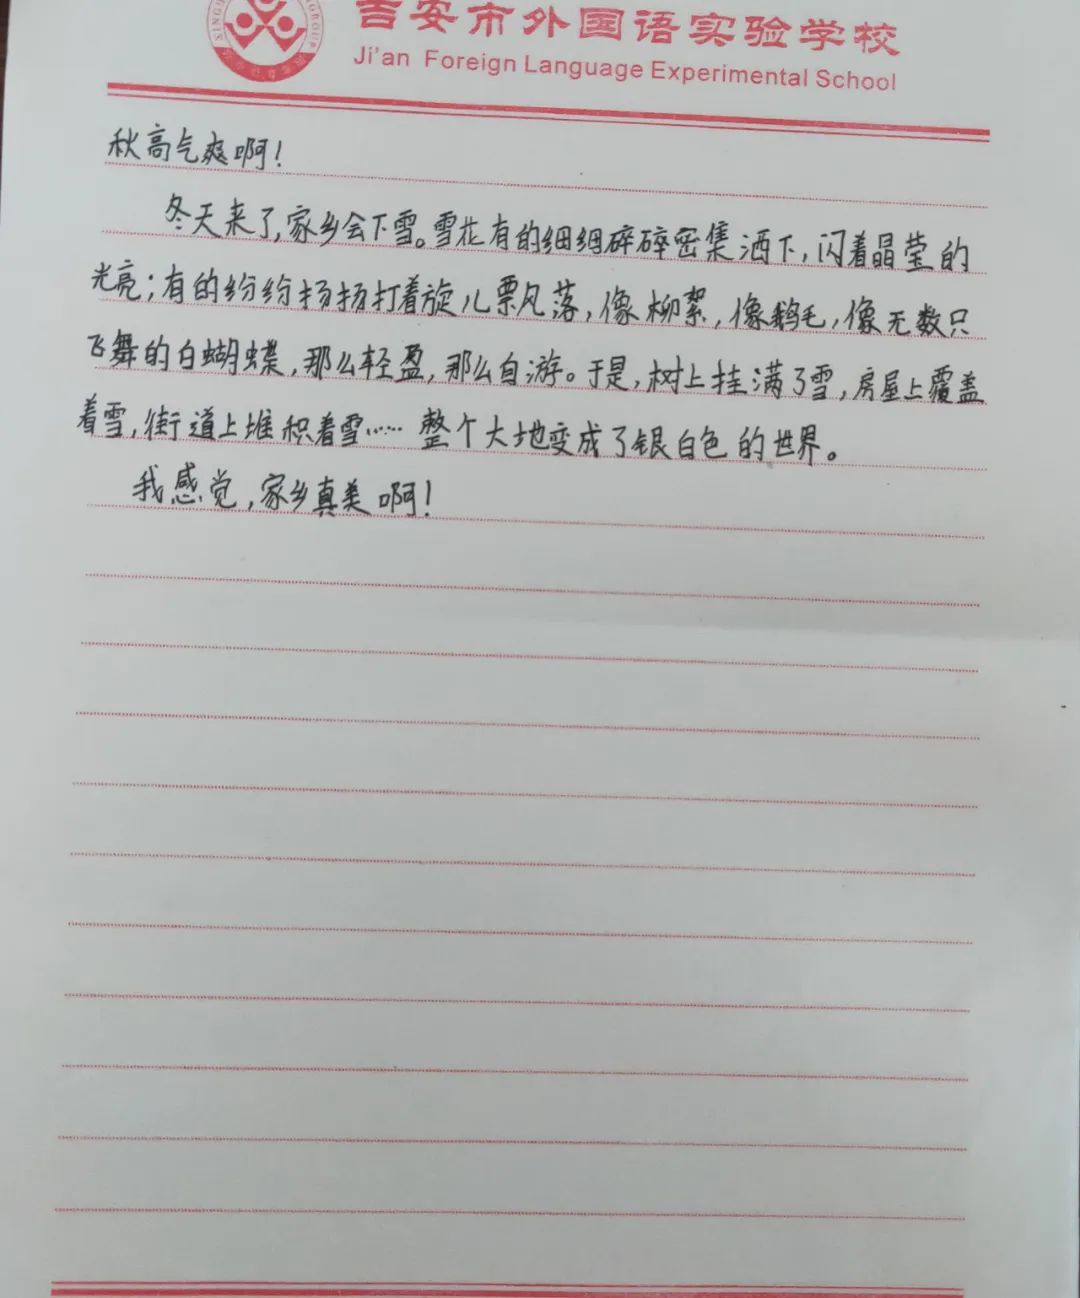 吉安市外国语实验学校
Ji'an Foreign Language Experimental School
秋高气爽啊!
冬天来了,家乡会下雪。雪花有的细细碎碎密集洒下,闪着晶莹的
光亮;有的纷纷扬扬打着旋儿飘落,像柳絮,像鹅毛,像无数只
飞舞的白蝴蝶,那么轻盈,那么自游。于是,树上挂满了雪,房屋上覆盖
着雪,街道上堆积着雪……整个大地变成了银白色的世界。
我感觉,家乡真美啊!